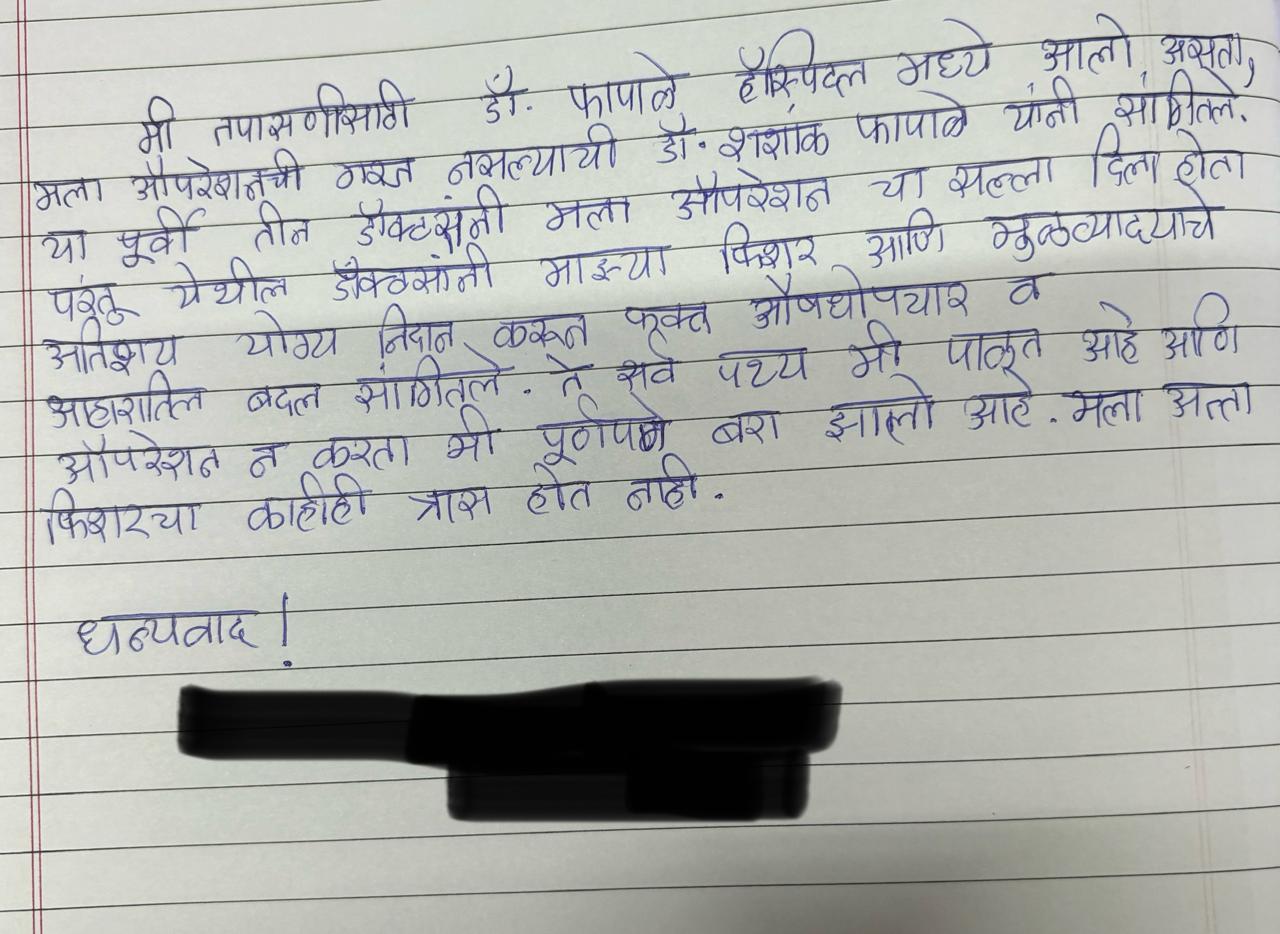 मी तपासणीसाठी डॉ. फापाळे हॉस्पिटल मध्ये आलो असता,
मला ऑपरेशनची गरज नसल्याची डॉ. शशांक फापाळे यांनी सांगितले.
या पूर्वी तीन डॉक्टरांनी मला ऑपरेशन चा सल्ला दिला होता
परंतू येथील डॉक्टरांनी माझ्या फिशर आणि मुळव्याद्याचे
अतिशय योग्य निदान करून फक्त औषधोपचार व
आहारातिल बदल सांगितले. ते सर्व पथ्य मी पाळत आहे आणि
ऑपरेशन न करता मी पूर्णपणे बरा झालो आहे. मला अत्ता
फिशरचा काहीही त्रास होत नाही.
धन्यवाद!